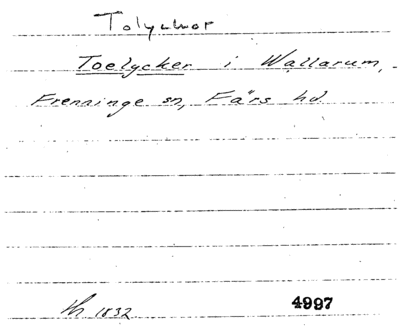 Tolyckor
Toelycker i Wallarum,
Frenninge sn, Färs hd.
Lh 1832 4997